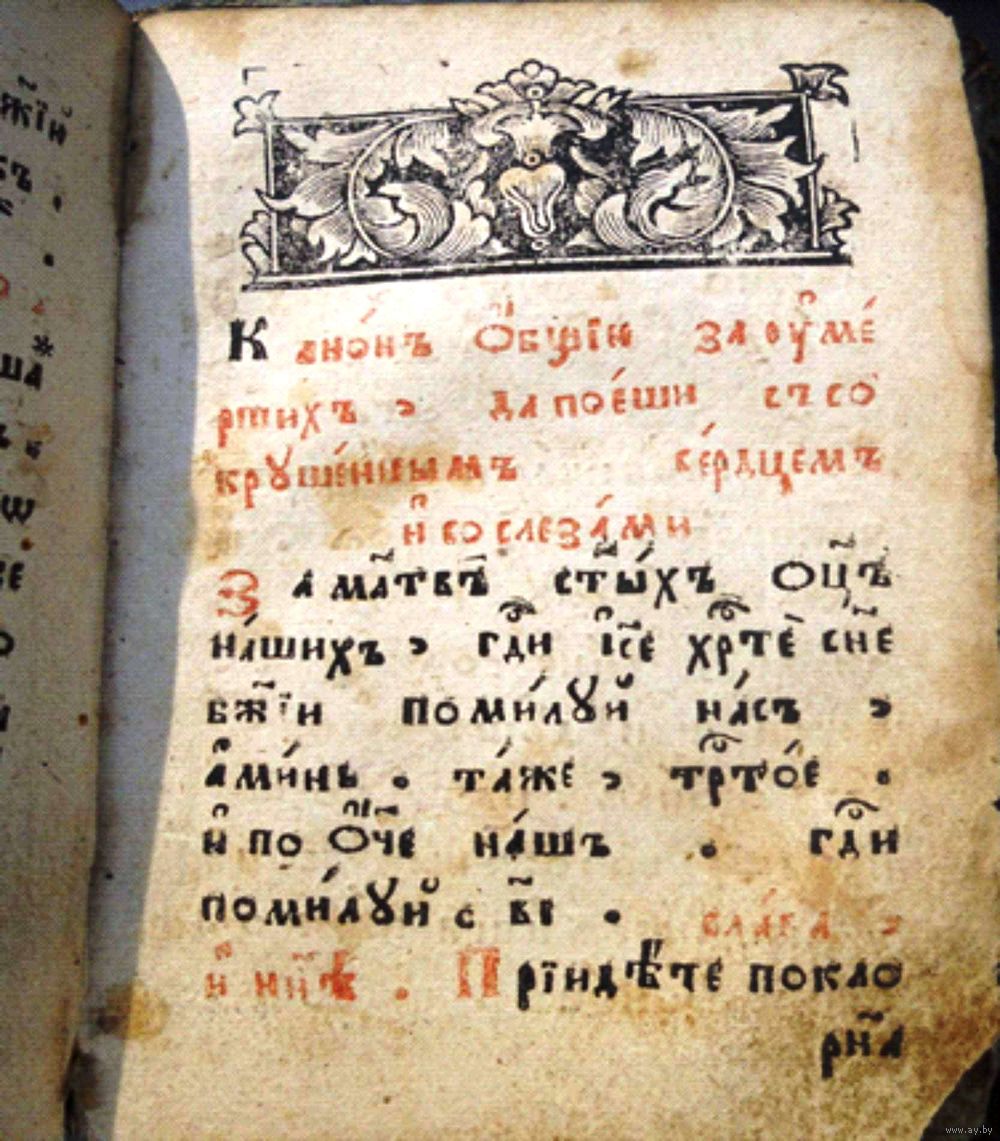 Кано́нъ Ѻ҆́бщїи за оу҆ме́
ршихъ , да пое́ши съ со
крꙋше́ннымъ се́рдцемъ
и҆ со слеза́ми
За мл҃твъ ст҃ы́хъ ѻц҃ъ
на́шихъ , гдⷭ҇и і҆с҃е хрⷭ҇тѐ сн҃е
бж҃їи поми́лꙋй на́съ ,
а҆ми́нь . та́же , трⷭ҇то́е .
и҆ по Ѻ҆́ч҃е на́шъ . гдⷭ҇и
поми́лꙋй в҃і . сла́ва ,
и҆ нн҃ѣ . Прїидѣ́те покло
рн҃а
www.ay.by